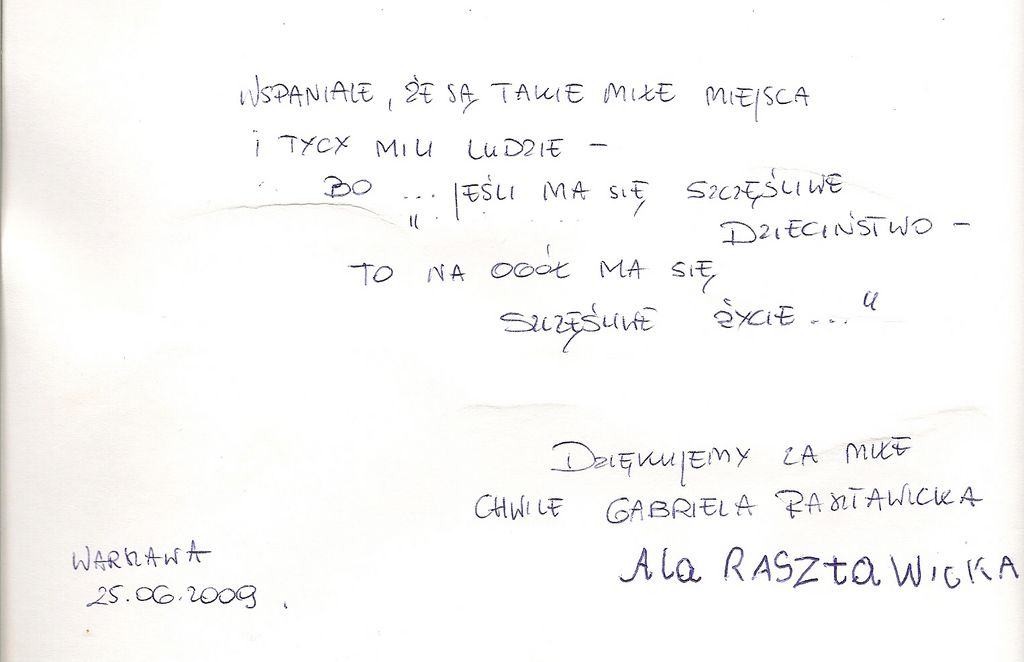 WSPANIALE, ŻE SĄ TAKIE MIŁE MIEJSCA
I TYCY MILI LUDZIE –
BO ... „JEŚLI MA SIĘ SZCZĘŚLIWE
DZIECIŃSTWO –
TO NA OGÓŁ MA SIĘ
SZCZĘŚLIWE ŻYCIE ..."
DZIĘKUJEMY ZA MIŁE
CHWILE GABRIELA RASZTAWICKA
Ala RASZtaWICKA
WARSZAWA
25.06.2009.